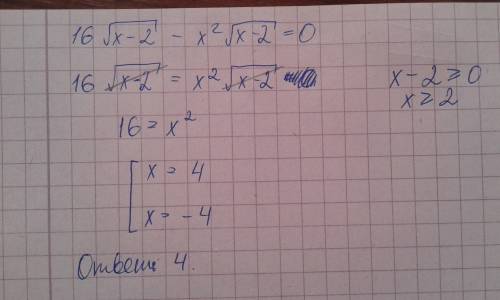 16 √(x-2) - x² √(x-2) = 0
16 √(x-2) = x² √(x-2)
x - 2 ≥ 0
x ≥ 2
16 = x²
[ x = 4
x = -4
Ответ: 4.